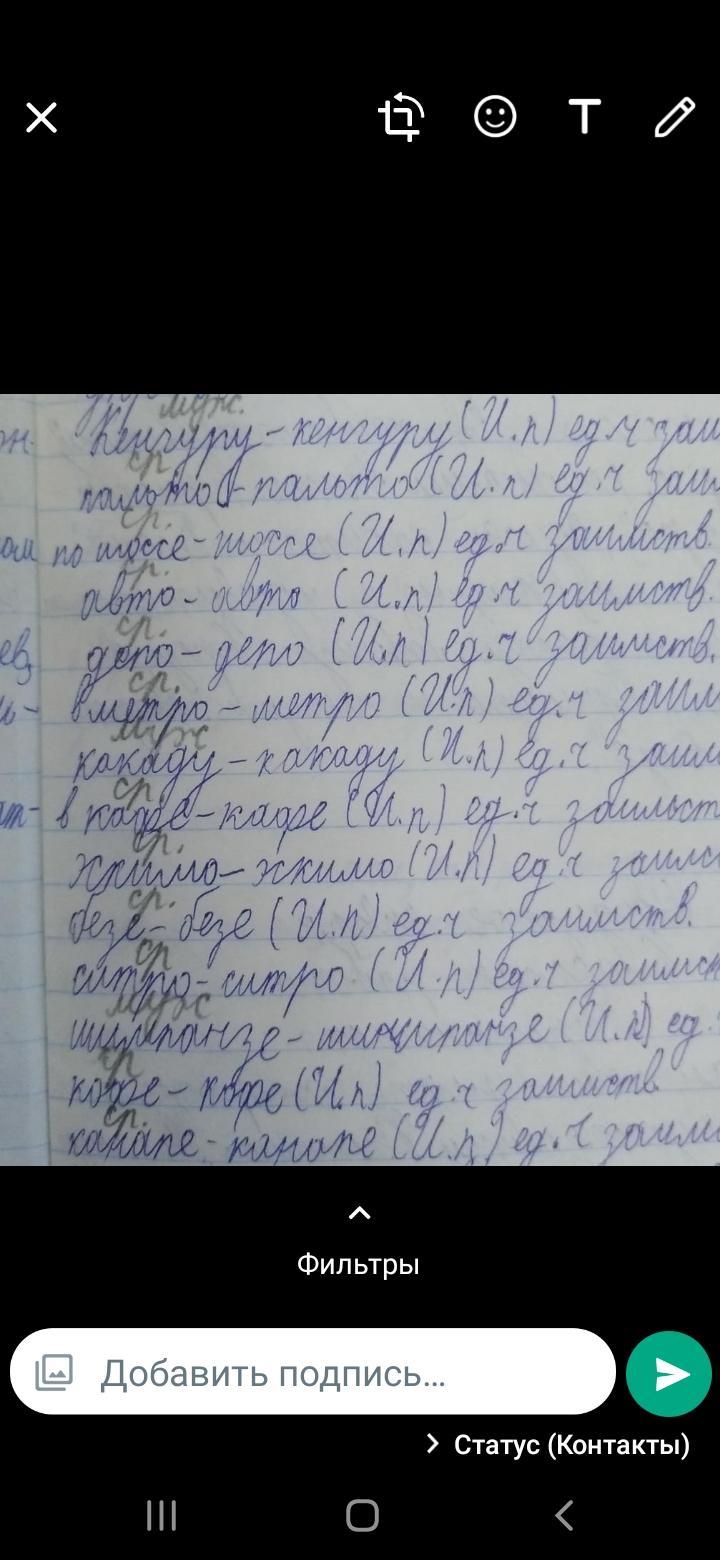 муж.
Кенгуру - кенгуру (И.п) ед.ч заи
ср
пальто - пальто (И.п) ед.ч заи
ср.
по шоссе - шоссе (И.п) ед.ч заимств.
ср.
авто - авто (И.п) ед.ч заимств.
ср.
депо - депо (И.п) ед.ч заимств.
ср.
в метро - метро (И.п) ед.ч заим
муж
какаду - какаду (И.п) ед.ч заим
ср
в кафе - кафе (И.п) ед.ч заимст
ср.
эскимо - эскимо (И.п) ед.ч заимс
ср.
безе - безе (И.п) ед.ч заимств.
ср
ситро - ситро (И.п) ед.ч заимст
муж
шимпанзе - шимпанзе (И.п) ед.
ср
кофе - кофе (И.п) ед.ч заимств
ср.
канапе - канапе (И.п) ед.ч заим
Фильтры
Добавить подпись...
Статус (Контакты)